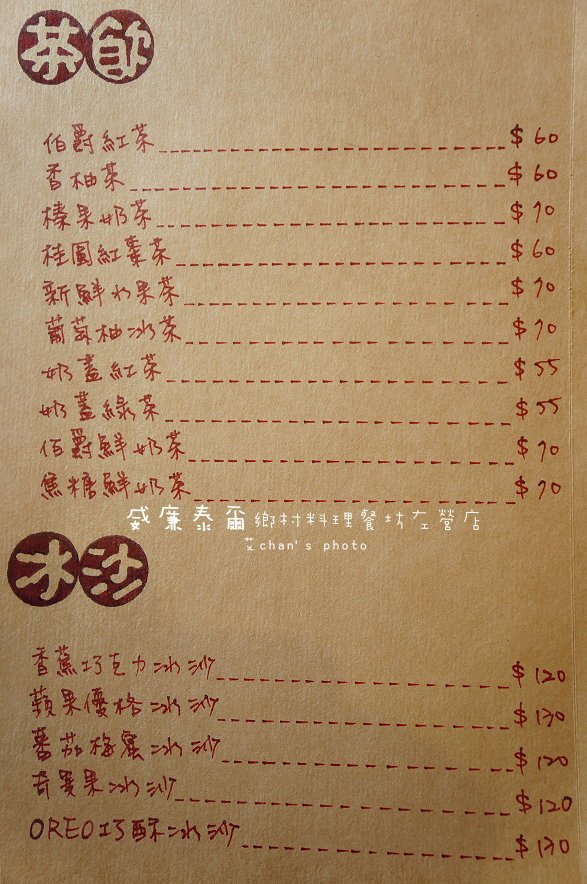 茶飲
伯爵紅茶 $60
香柚茶 $60
榛果奶茶 $70
桂圓紅棗茶 $60
新鮮水果茶 $70
葡萄柚冰茶 $70
奶蓋紅茶 $55
奶蓋綠茶 $55
伯爵鮮奶茶 $70
焦糖鮮奶茶 $70
威廉泰爾鄉村料理餐坊左營店
艾chan's photo
冰沙
香蕉巧克力冰沙 $120
蘋果優格冰沙 $130
蕃茄梅蜜冰沙 $120
奇異果冰沙 $120
OREO巧酥冰沙 $130